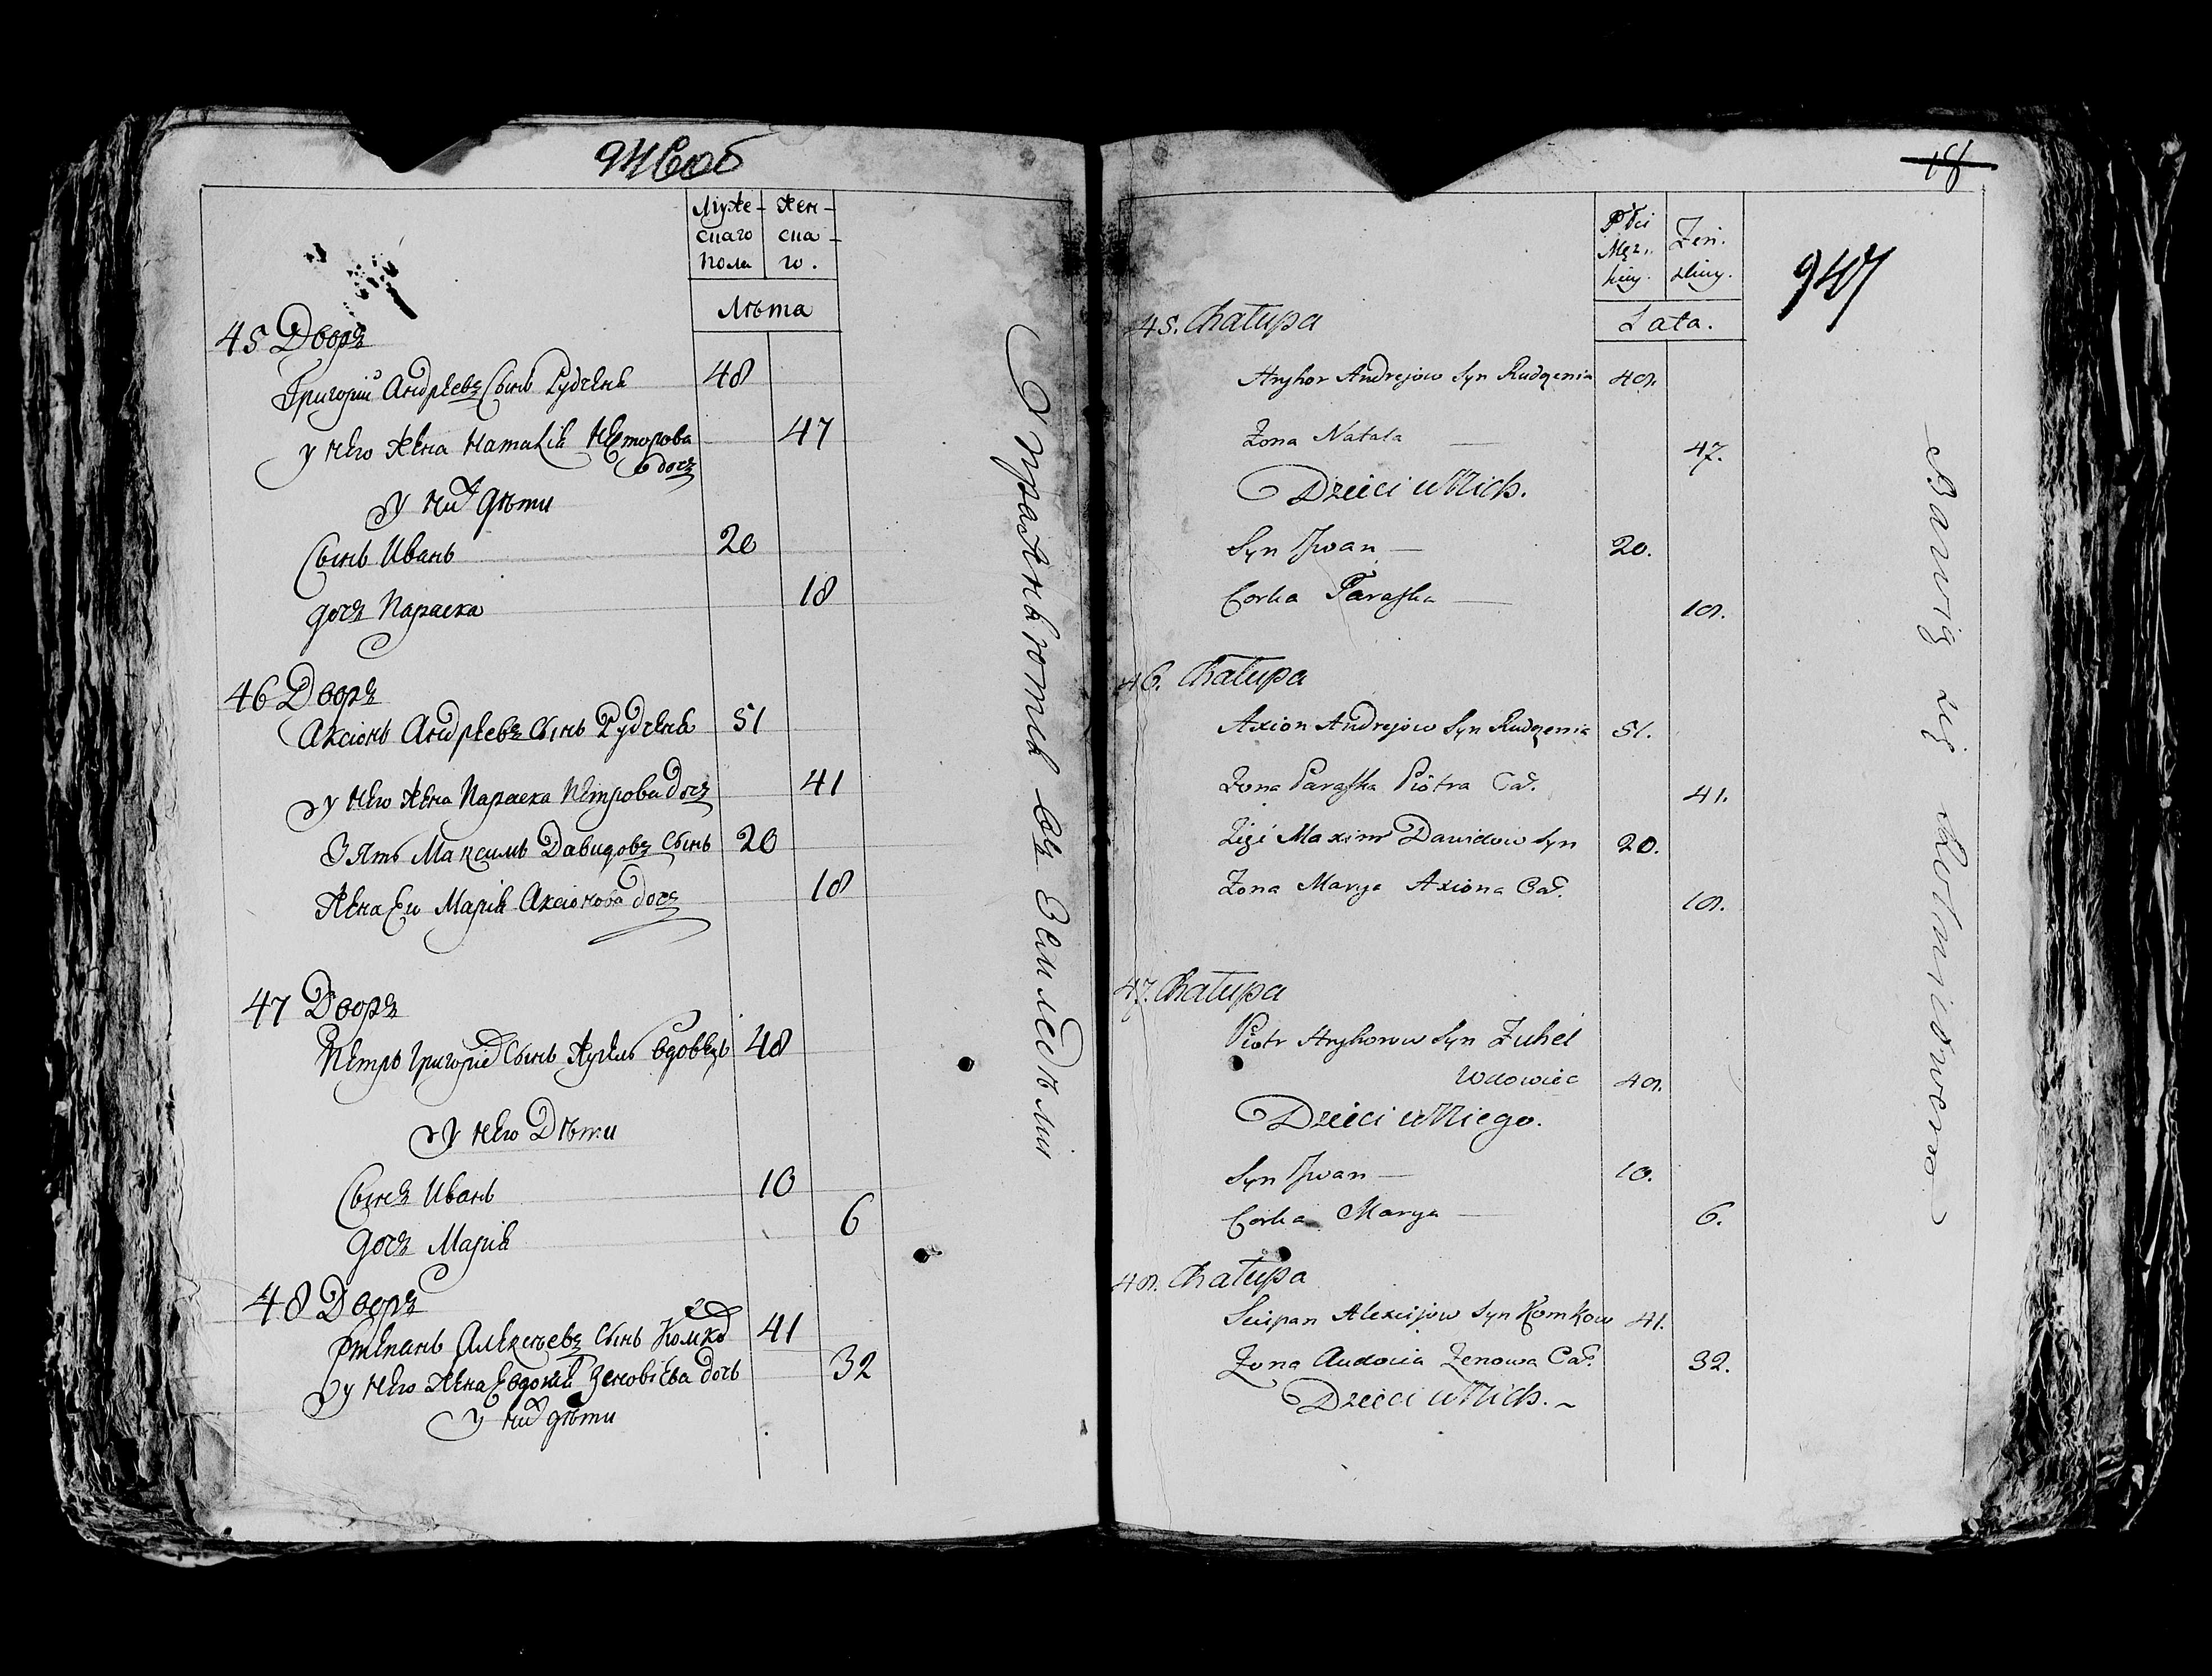 946об
Муже- Жен-
скаго ска-
пола го.
Лѣта
45 Дворъ
Григорий Андреевъ Сынъ Рудченя 48
у Него Жена Наталія Несторова 47
дочь
У них Дѣти
Сынъ Иванъ 20
дочь Параска 18
46 Дворъ
Аксіонъ Андреевъ Сынъ Рудченя 51
у Него Жена Параска Петрова дочь 41
Зять Максимъ Давидовъ Сынъ 20
Жена Еи Марія Аксіонова дочь 18
47 Дворъ
Петръ Григоріе Сынъ вдовецъ 48
у Него Дѣти
Сынъ Иванъ 10
дочь Марія 6
48 Дворъ
Степанъ Алексѣевъ Сынъ Комко 41
у Него Жена Евдокія Зеновіева дочь 32
У них дѣти
Упражняютсь въ Земледѣліи
18
Płci
Męz- Żeń.
kiey. skiey.
Lata.
947
45. Chałupa
Hryhor Andrejow Syn Rudzenia 48.
Żona Natala — 47.
Dzieci u Nich.
Syn Jwan — 20.
Corka Paraska — 18.
46. Chałupa
Axion Andrejow Syn Rudzenia 51.
Żona Paraska Piotra Ca. 41.
Zięć Maxim Dawidow Syn 20.
Żona Marya Axiona Ca. 18.
47. Chałupa
Piotr Hryhorow Syn Żuhel
Wdowiec 48.
Dzieci u Niego.
Syn Jwan — 10.
Corka Marya — 6.
48. Chałupa
Sciepan Alexiejow Syn Komkow 41.
Żona Audocia Zenowa Ca. 32.
Dzieci u Nich. -
Bawią się Rolnictwem